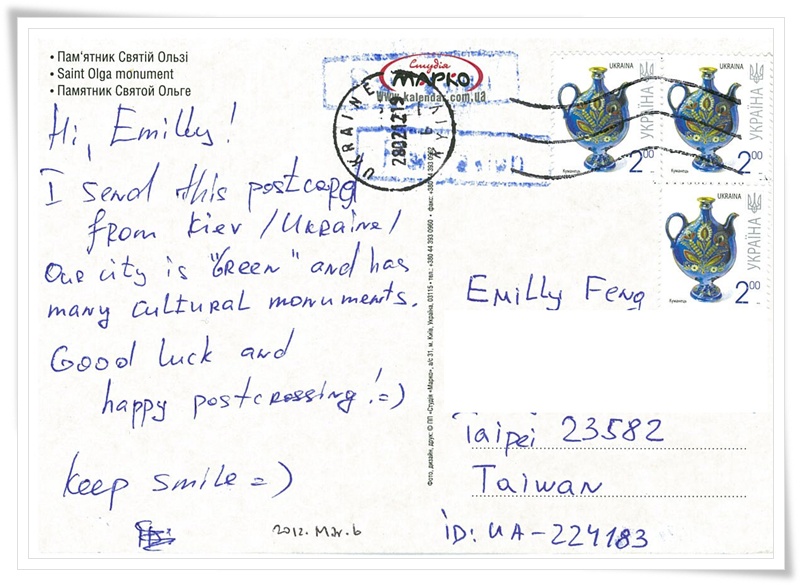 • Пам'ятник Святій Ользі
• Saint Olga monument
• Памятник Святой Ольге
Студія
МАРКО
www.kalendar.com.ua
UKRAINE
KYIV
280212 19
UKRAINA
УКРАЇНА
Куманець
2.00
UKRAINA
УКРАЇНА
Куманець
2.00
UKRAINA
УКРАЇНА
Куманець
2.00
Hi, Emilly!
I send this postcard
from Kiev /Ukraine/
Our city is "Green" and has
many cultural monuments.
Good luck and
happy postcrossing!=)
Keep smile =)
2012. Mar. 6
Фото, дизайн, друк: © ПП «Студія «Марко», а/с 31, м. Київ, Україна, 03115 • тел.: +380 44 393 0960 • факс: +380 44 393 0962
Emilly Feng
Taipei 23582
Taiwan
iD: UA-224183